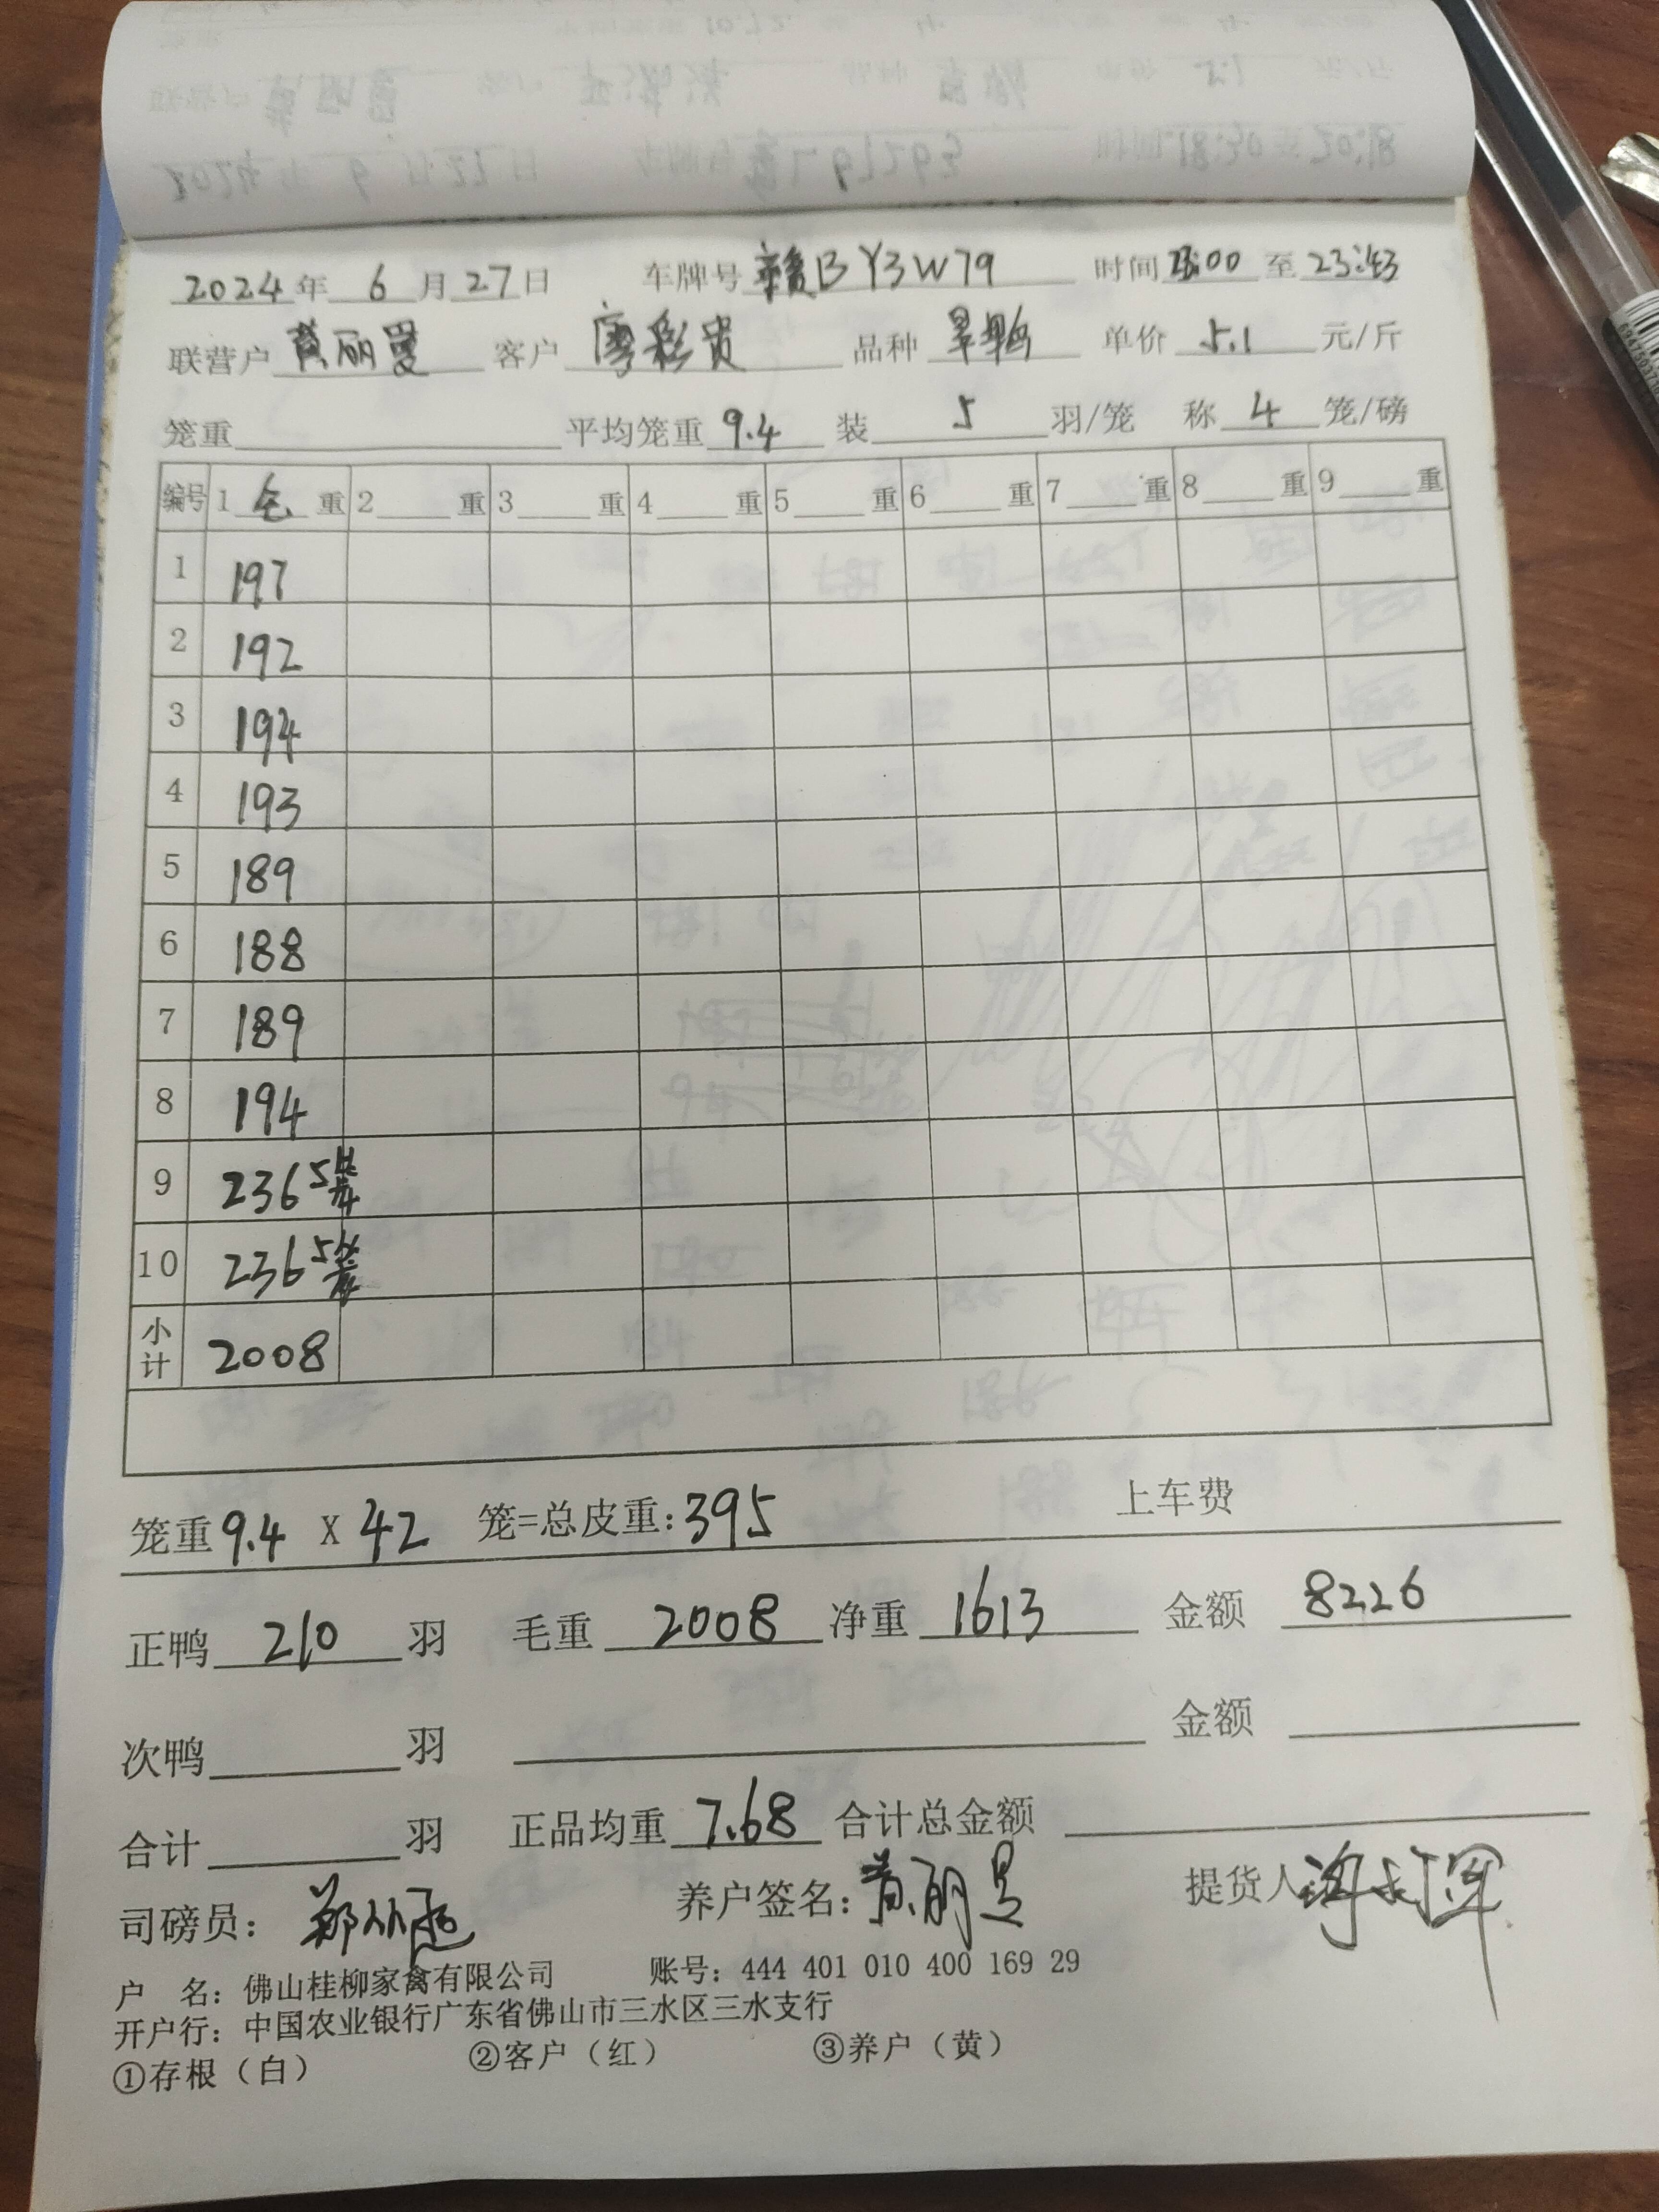 2024年 6 月 27 日 车牌号 赣B Y3W79 时间 23:00 至 23:43
联营户 黄丽曼 客户 廖彩贵 品种 旱鸭 单价 5.1 元/斤
笼重 平均笼重 9.4 装 5 羽/笼 称 4 笼/磅
编号 1 毛 重 2 重 3 重 4 重 5 重 6 重 7 重 8 重 9 重
1 197
2 192
3 194
4 193
5 189
6 188
7 189
8 194
9 236 5笼
10 236 5笼
小计 2008
笼重 9.4 X 42 笼=总皮重: 395 上车费
正鸭 210 羽 毛重 2008 净重 1613 金额 8226
次鸭 羽 金额
合计 羽 正品均重 7.68 合计总金额
司磅员: 郑 养户签名: 黄丽曼 提货人
户 名: 佛山桂柳家禽有限公司 账号: 444 401 010 400 169 29
开户行: 中国农业银行广东省佛山市三水区三水支行
①存根（白） ②客户（红） ③养户（黄）